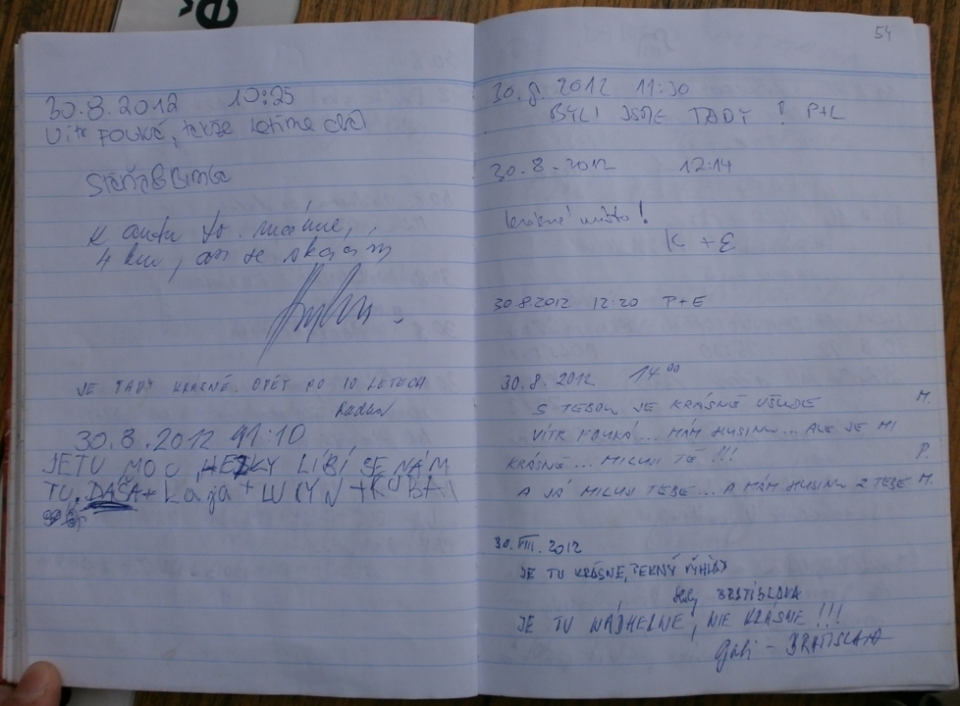 ě
30.8.2012 10:25
Vítr fouká, takže letíme dál
K autu to máme,
4 km, an se
JE TADY KRÁSNĚ. OPĚT PO 10 LETECH
Radan
30.8.2012 11:10
JE TU MOC HEZKY LÍBÍ SE NÁM
TU. DÁŠA + Lája + LUCYN + KUBA
54
30.8.2012 11:30
BYLI JSME TADY! P+L
30.8.2012 12:14
krásné místo!
K + E
30.8.2012 12:20 P+E
30.8.2012 14⁰⁰
S TEBOU JE KRÁSNĚ VŠUDE M.
VÍTR FOUKÁ... MÁM HUSINU... ALE JE MI
KRÁSNĚ... MILUJI TĚ !!! P.
A JÁ MILUJI TEBE... A MÁM HUSINU Z TEBE M.
30. VIII. 2012
JE TU KRÁSNE, PEKNÝ VÝHĽAD
BRATISLAVA
JE TU NÁDHERNE, NIE KRÁSNE !!!
Gabi - BRATISLAVA